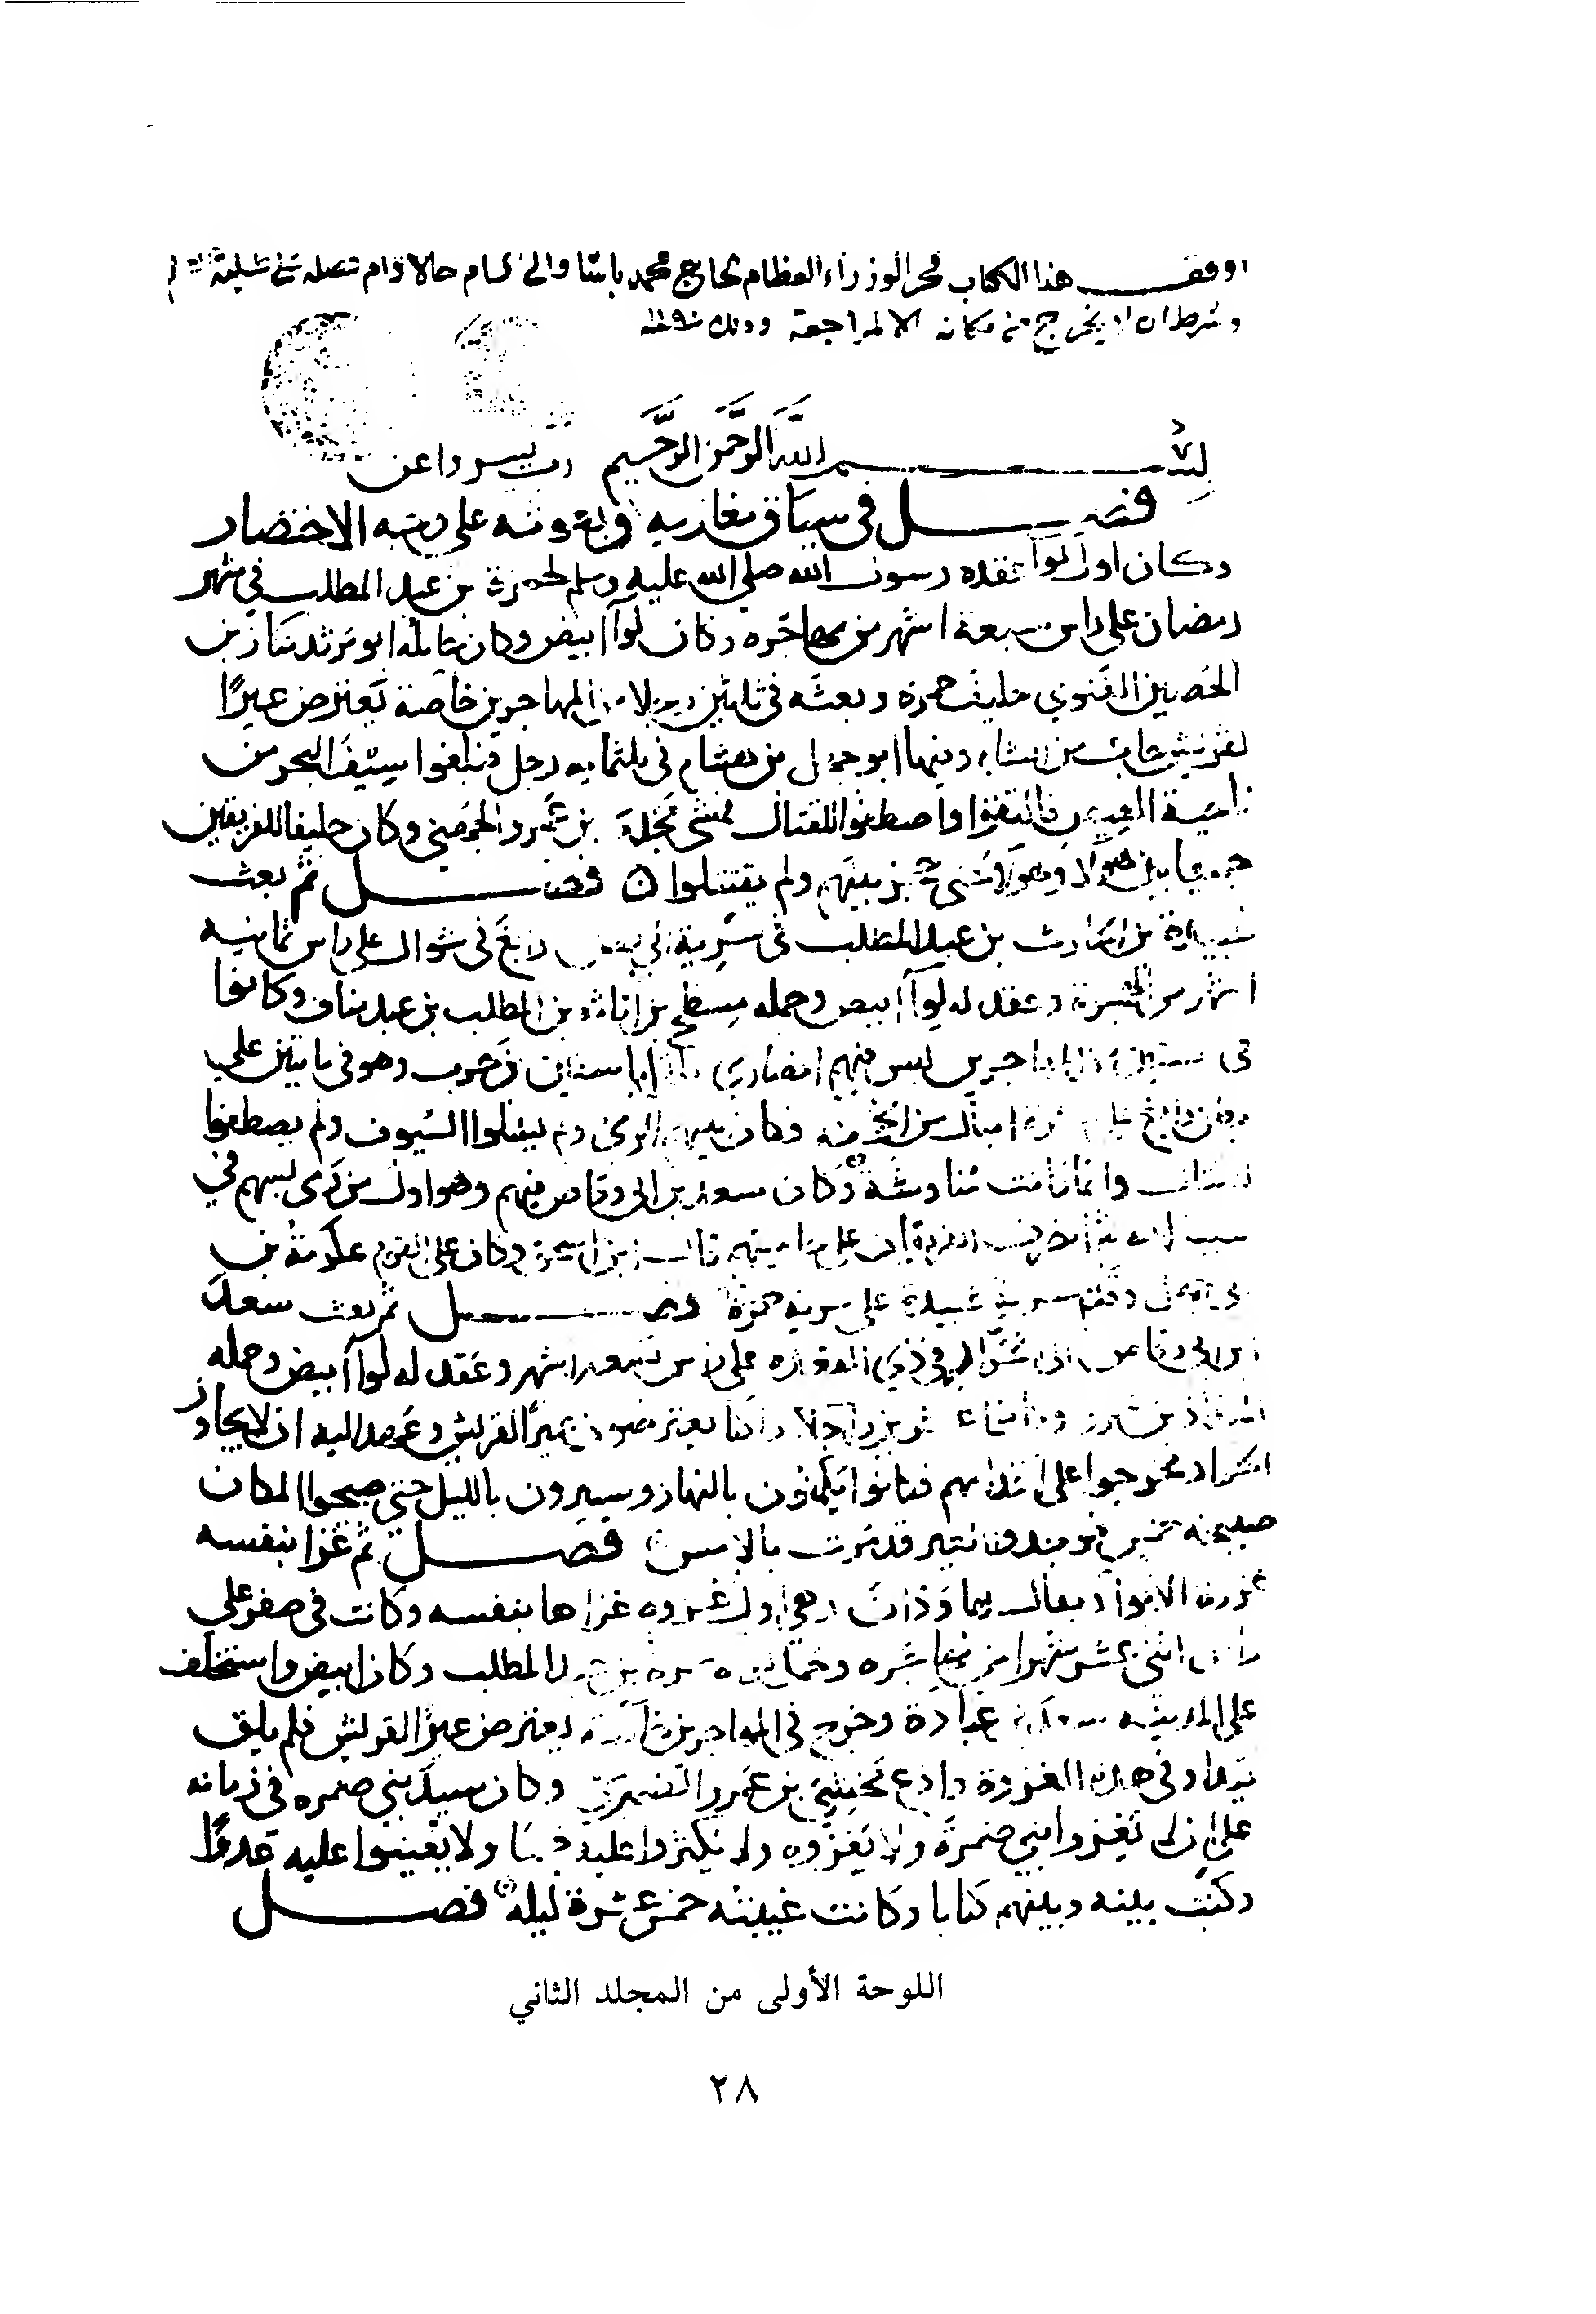 اوقف هذا الكتاب فخر الوزراء العظام الحاج محمد باشا والي الشام حالا دام
وشرط ان لا يخرج من مكانه الا لمراجعة وذلك
بسم الله الرحمن الرحيم رب يسر واعن
فصل في سياق مغازيه وبعوثه على وجه الاختصار
وكان اول لوآ عقده رسول الله صلى الله عليه وسلم لحمزة بن عبد المطلب في شهر
رمضان على راس سبعة اشهر من مهاجره وكان لوآ ابيض وكان حامله ابو مرثد كناز بن
الحصين الغنوي حليف حمزة وبعثه في ثلثين رجلا من المهاجرين خاصة يعترض عيرًا
لقريش جات من الشام وفيها ابو جهل بن هشام في ثلثمايه رجل فبلغوا سيف البحر من
ناحية العيص فالتقوا واصطفوا للقتال فمشى مجدي بن عمرو الجهني وكان حليفا للفريقين
جميعا بين هولا وهولا حتى حجز بينهم ولم يقتتلوا ن فصل ثم بعث
عبيدة بن الحارث بن عبد المطلب في سرية الى بطن رابغ في شوال على راس ثمانيه
اشهر من الهجرة وعقد له لوآ ابيض وحمله مسطح بن اثاثه بن المطلب بن عبد مناف وكانوا
في ستين من المهاجرين ليس فيهم انصاري فلقي ابا سفيان بن حرب وهو في مايتين على
بطن رابغ على عشرة اميال من الجحفه وكان بينهم الرمي ولم يسلوا السيوف ولم يصطفوا
للقتال وانما كانت مناوشة وكان سعد بن ابي وقاص فيهم وهو اول من رمى بسهم في
سبيل الله ثم انصرف الفريقان على حاميتهم قال ابن اسحق وكان على القوم عكرمة بن
ابي جهل وقدم سرية عبيدة على سرية حمزة فصل ثم بعث سعد
بن ابي وقاص الى الخرار في ذي القعده على راس تسعه اشهر وعقد له لوآ ابيض وحمله
المقداد بن عمرو وكانوا عشرين راجلا يعترضون عيرًا لقريش وعهد اليه ان لا يجاوز
الخرار فخرجوا على اقدامهم فكانوا يكمنون بالنهار ويسيرون بالليل حتى صبحوا المكان
صبيحة خمس فوجدوا العير قد مرت بالامس فصل ثم غزا بنفسه
غزوة الابوآ ويقال لها ودان وهي اول غزوه غزاها بنفسه وكانت في صفر على
راس اثنى عشر شهرا من مهاجره وحمل لواه حمزه بن عبد المطلب وكان ابيض واستخلف
على المدينه سعد بن عبادة وخرج في المهاجرين خاصة يعترض عيرًا لقريش فلم يلق
كيدا وفي هذه الغزوة وادع مخشي بن عمرو الضمري وكان سيد بني ضمره في زمانه
على ان لا تغزوا بني ضمرة ولا يغزوه ولا يكثروا عليه جمعا ولا يعينوا عليه عدوًا
وكتب بينه وبينهم كتابا وكانت غيبته خمس عشرة ليله فصل
اللوحة الأولى من المجلد الثاني
٢٨